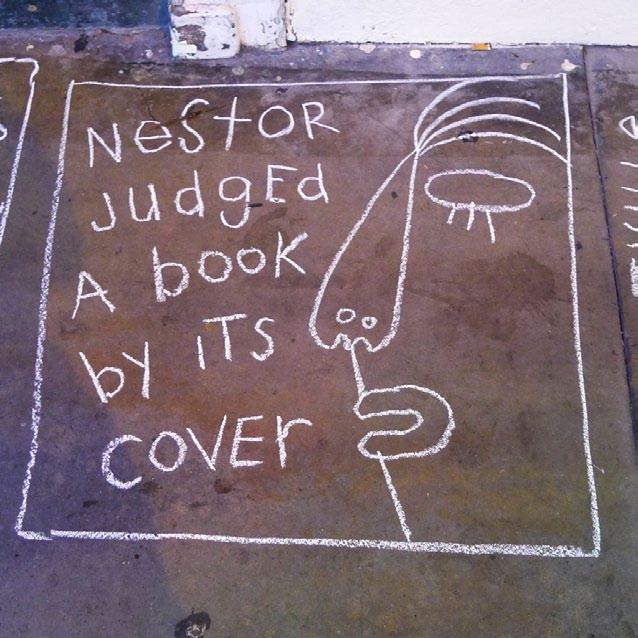 NeStOR
JudgEd
A book
by iTS
COVEr